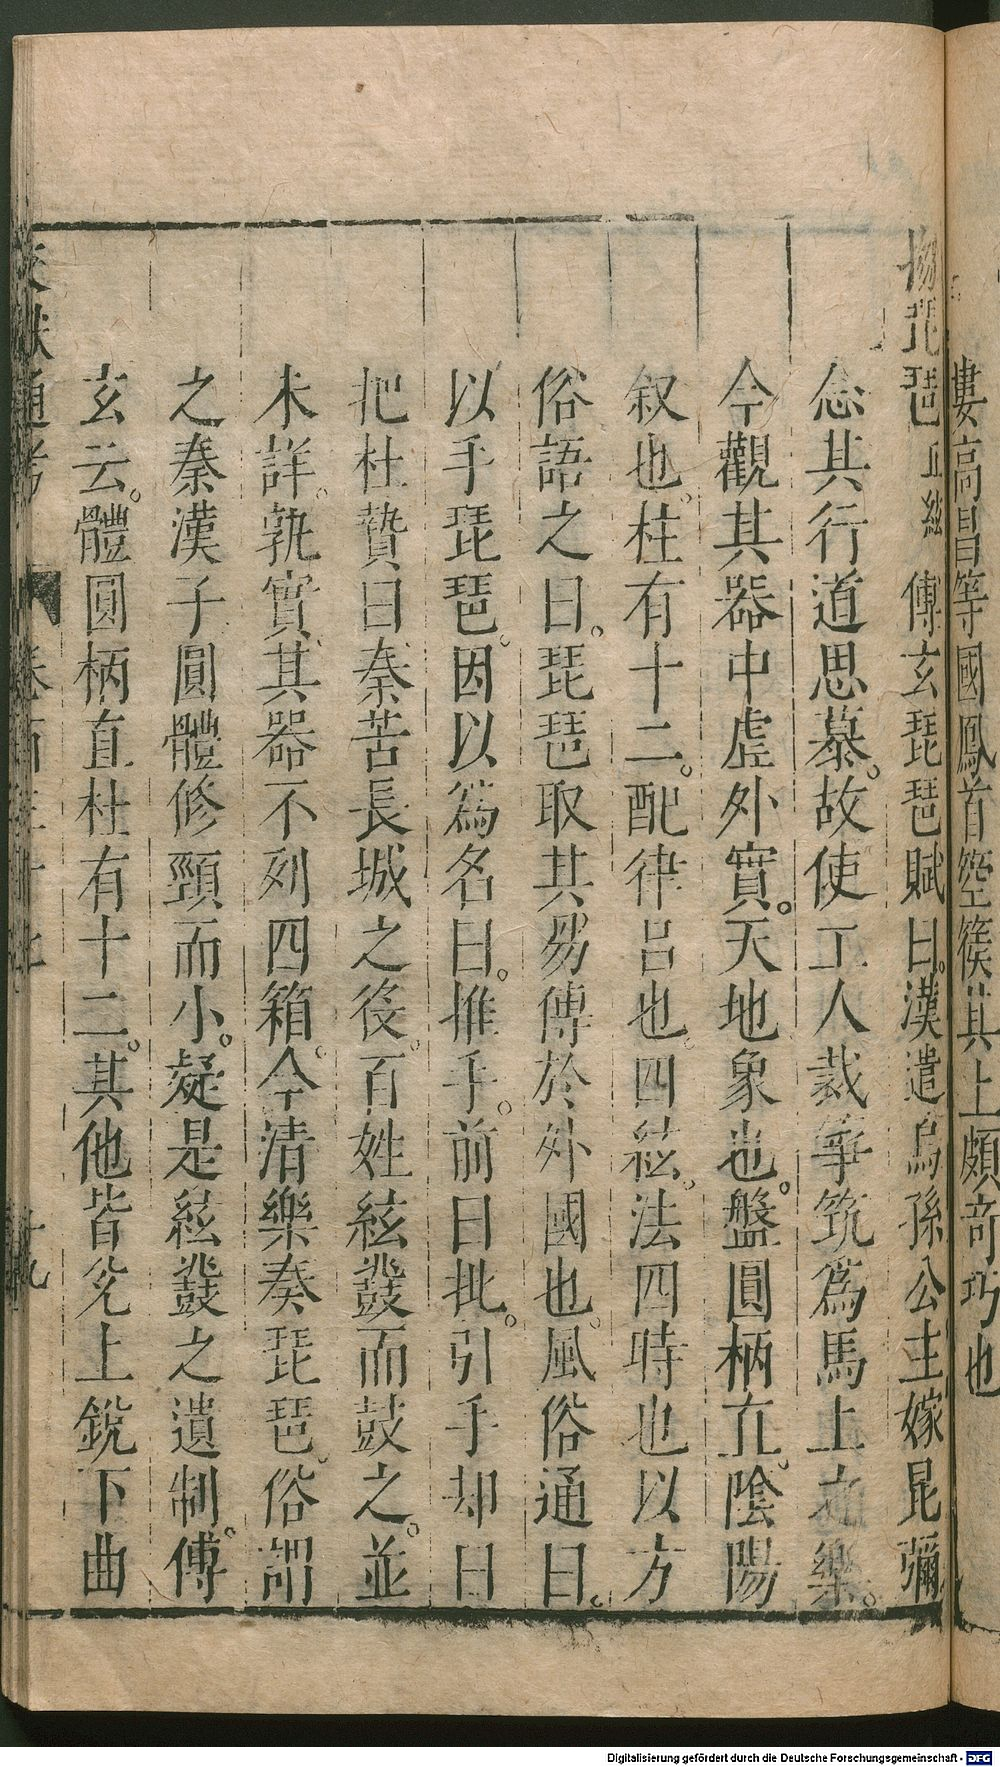 婁高昌等國鳳首箜篌其上頗奇巧也
搊琵琶五絃　傅玄琵琶賦曰漢遣烏孫公主嫁昆彌
念其行道思慕。故使工人裁箏筑爲馬上之樂。
今觀其器中虛外實。天地象也。盤圓柄直。陰陽
叙也。柱有十二。配律呂也。四絃。法四時也以方
俗語之曰。琵琶取其易傳於外國也。風俗通曰。
以手琵琶。因以爲名曰。推手。前曰批。引手却曰
把杜贄曰秦苦長城之役。百姓絃鼗而鼓之。並
未詳。孰實其器不列四箱。今清樂奏琵琶。俗謂
之秦漢子圓體修頸而小。疑是絃鼗之遺制。傅
玄云。體圓柄直柱有十二。其他皆兊上銳下曲
文獻通考　卷百三十七　十九
Digitalisierung gefördert durch die Deutsche Forschungsgemeinschaft - DFG